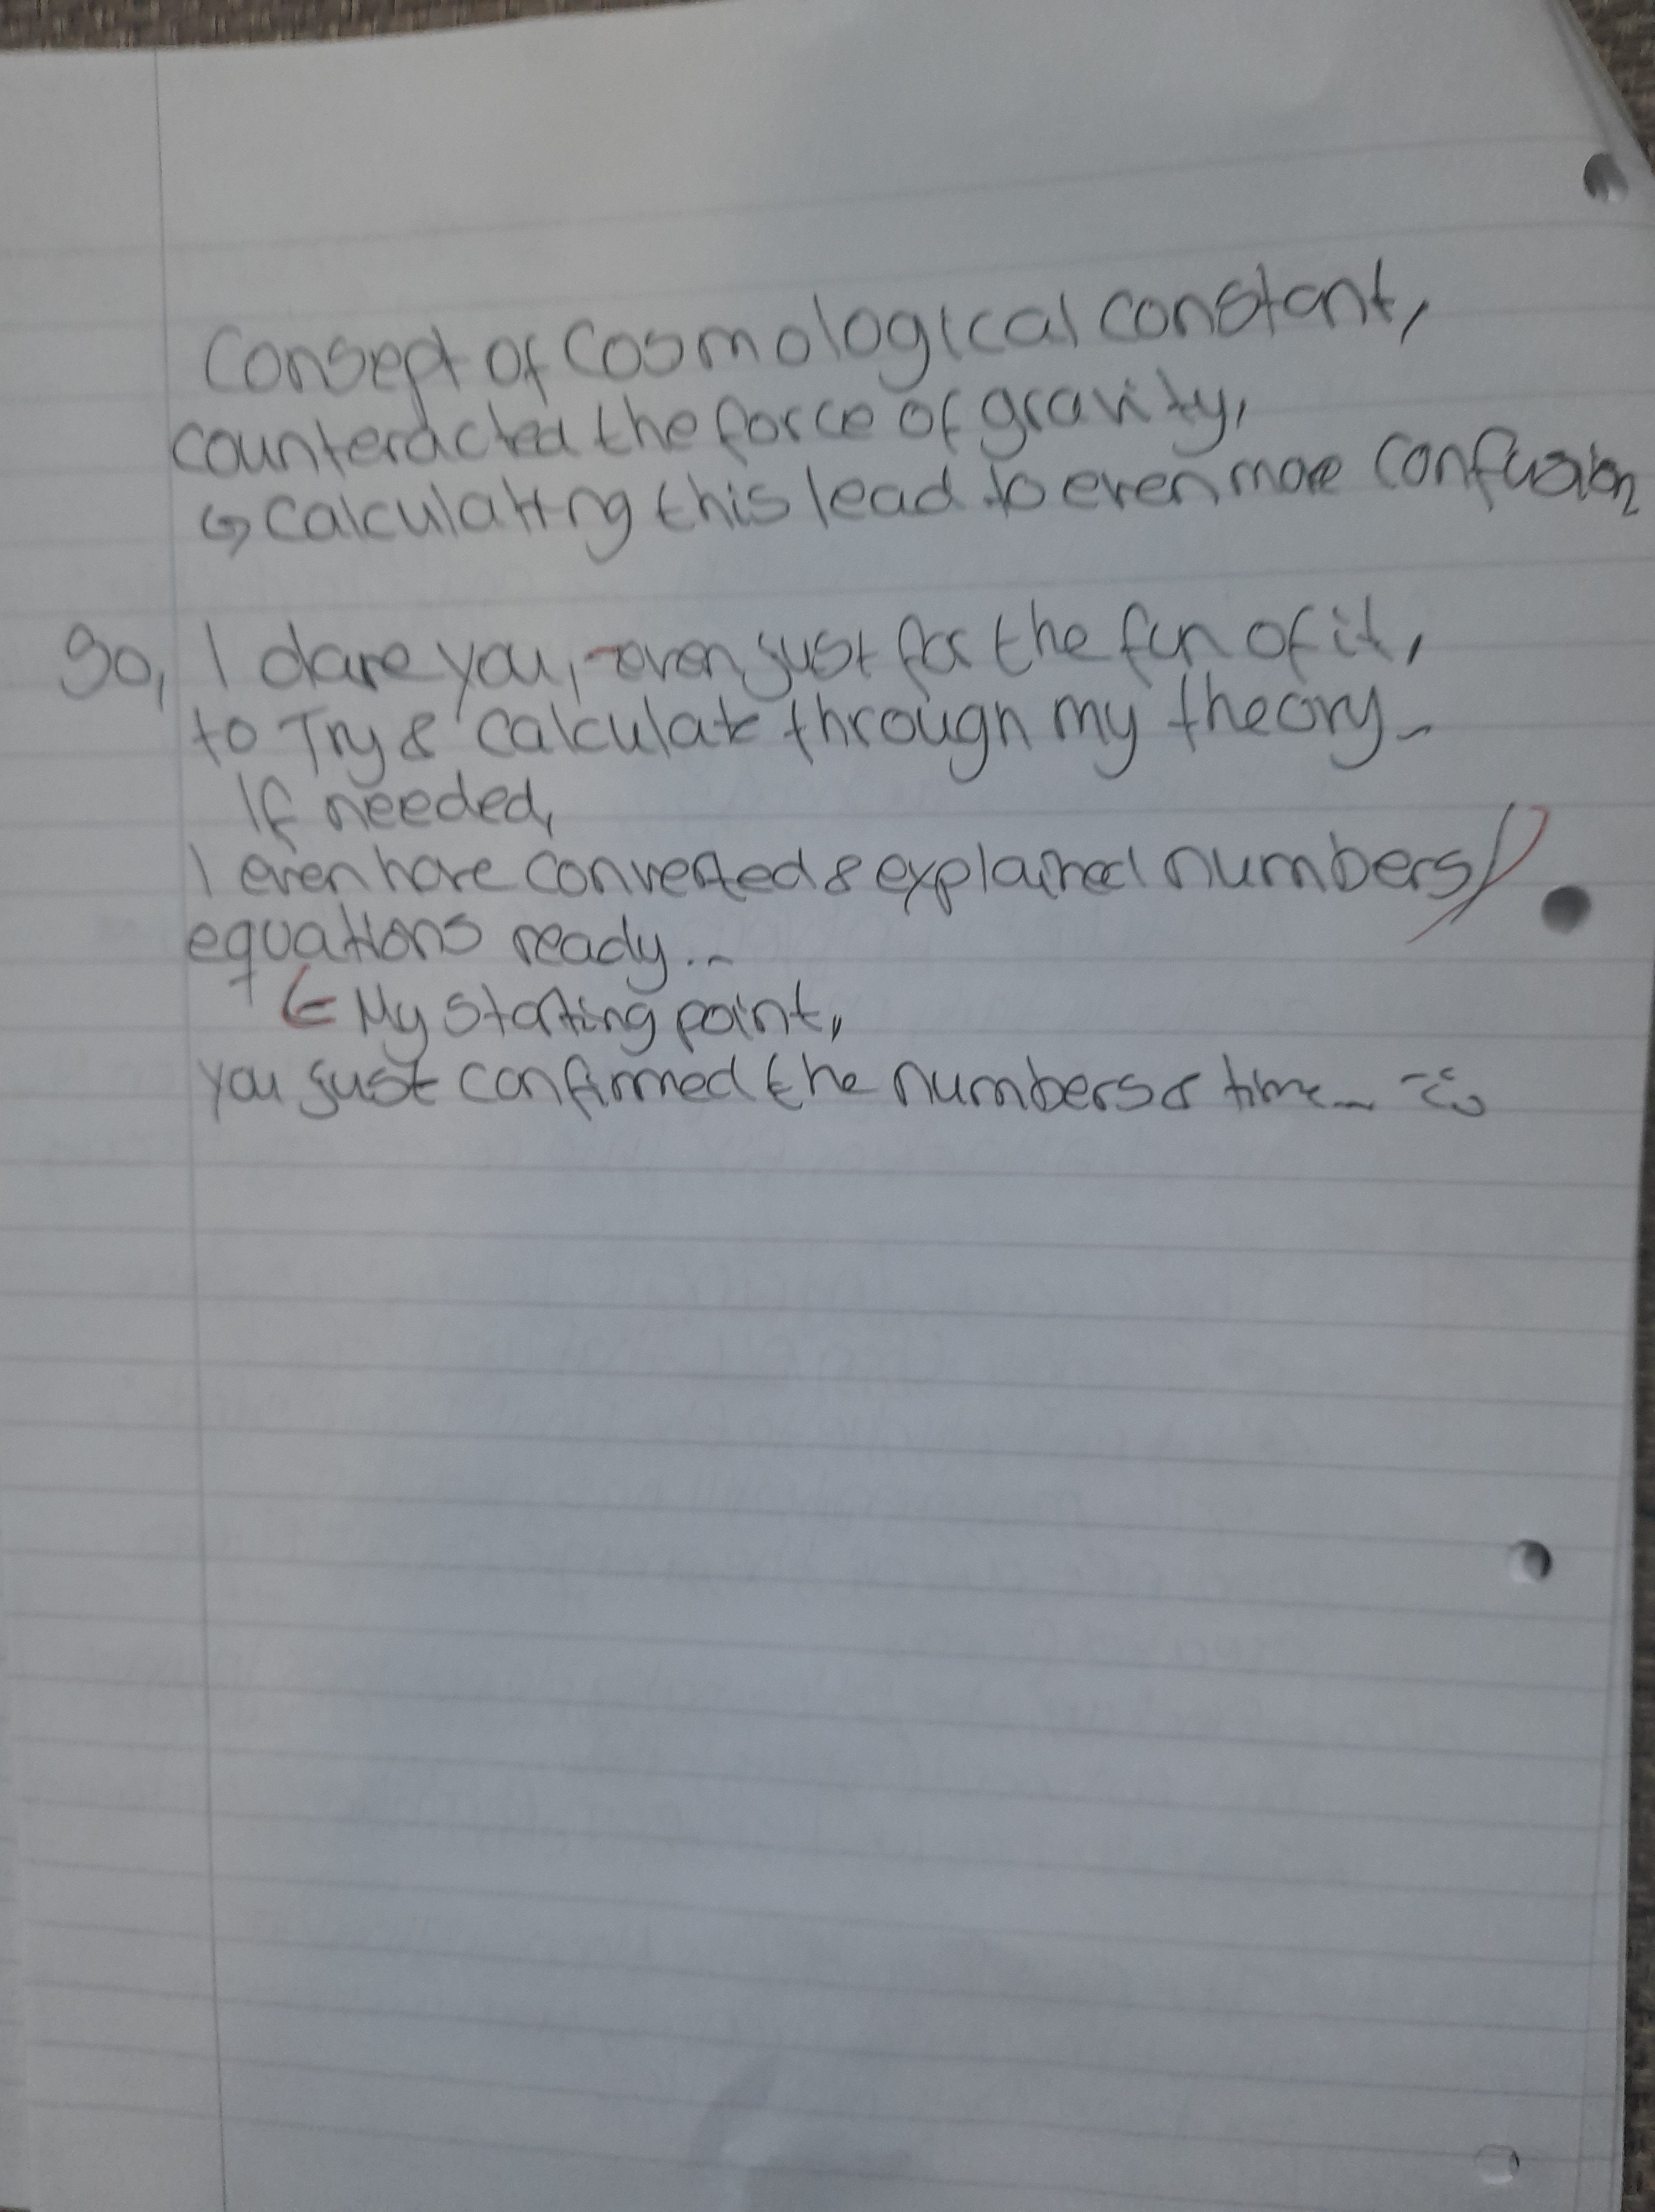 Consept of Cosmological constant,
counteracted the force of gravity,
↳ Calculating this lead to even more confusion
So, I dare you, even just for the fun of it,
to Try & calculate through my theory..
If needed,
I even have converted & explained numbers/
equations ready...
← My starting point,
you just confirmed the numbers & time..